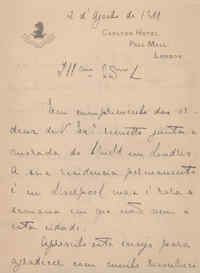 2 d'Agosto de 1911
CARLTON HOTEL
PALL MALL
LONDON
Illmo Exmo
Em cumprimento das or-
dens de V. Exa remetto junto a
morada do em Londres.
A sua residencia permanente
é em Liverpool mas é rara a
semana em que não vem a
esta cidade.
Aproveito este ensejo para
agradecer com muito